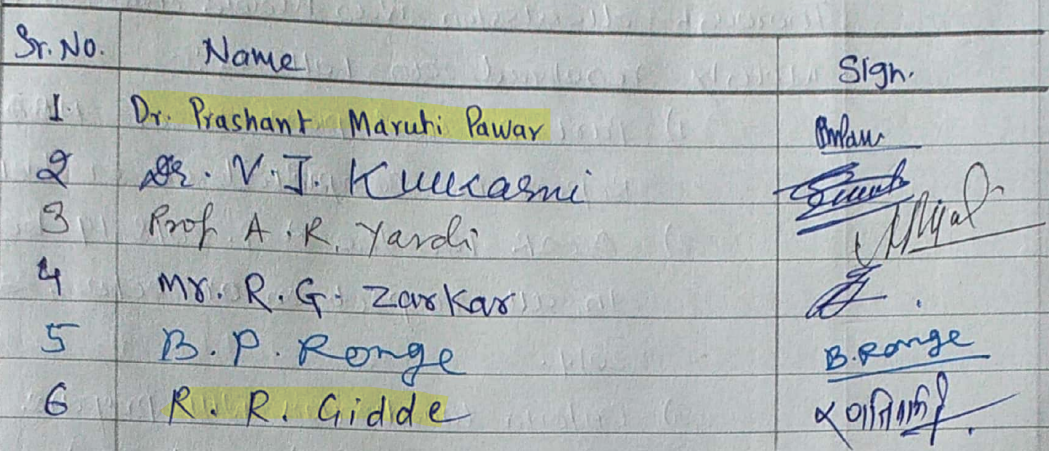 Sr. No. Name Sign.
1. Dr. Prashant Maruti Pawar
2 Dr. V. J. Kulkarni
3 Prof A. R. Yardi
4 Mr. R. G. Zarkar
5 B. P. Ronge B. Ronge
6 R. R. Gidde